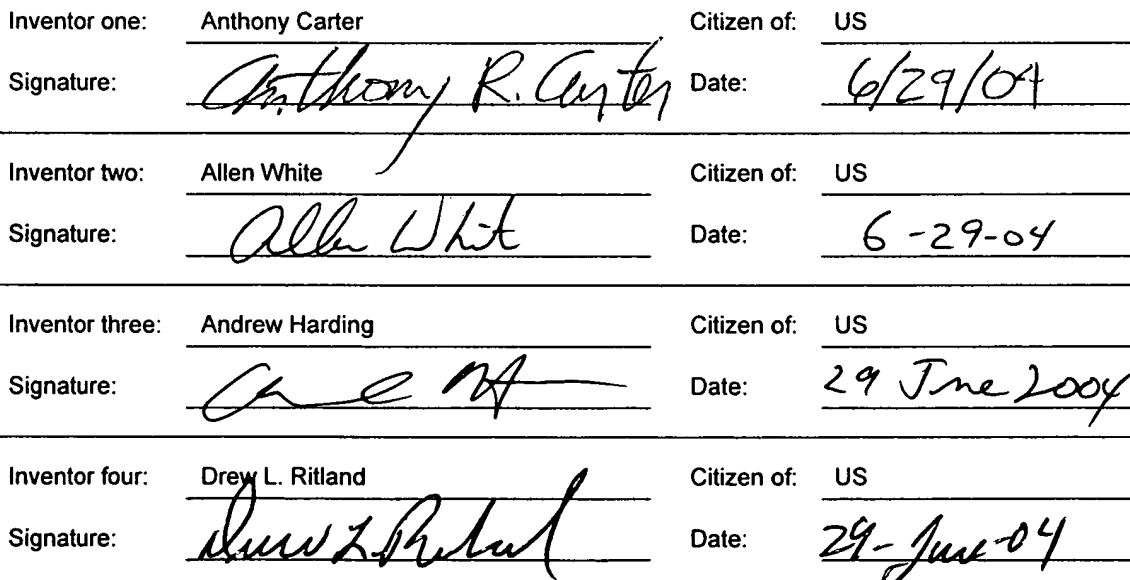 Inventor one: Anthony Carter Citizen of: US
Signature: Anthony R. Carter Date: 6/29/04
Inventor two: Allen White Citizen of: US
Signature: Allen White Date: 6-29-04
Inventor three: Andrew Harding Citizen of: US
Signature: Date: 29 June 2004
Inventor four: Drew L. Ritland Citizen of: US
Signature: Drew L. Ritland Date: 29-June-04